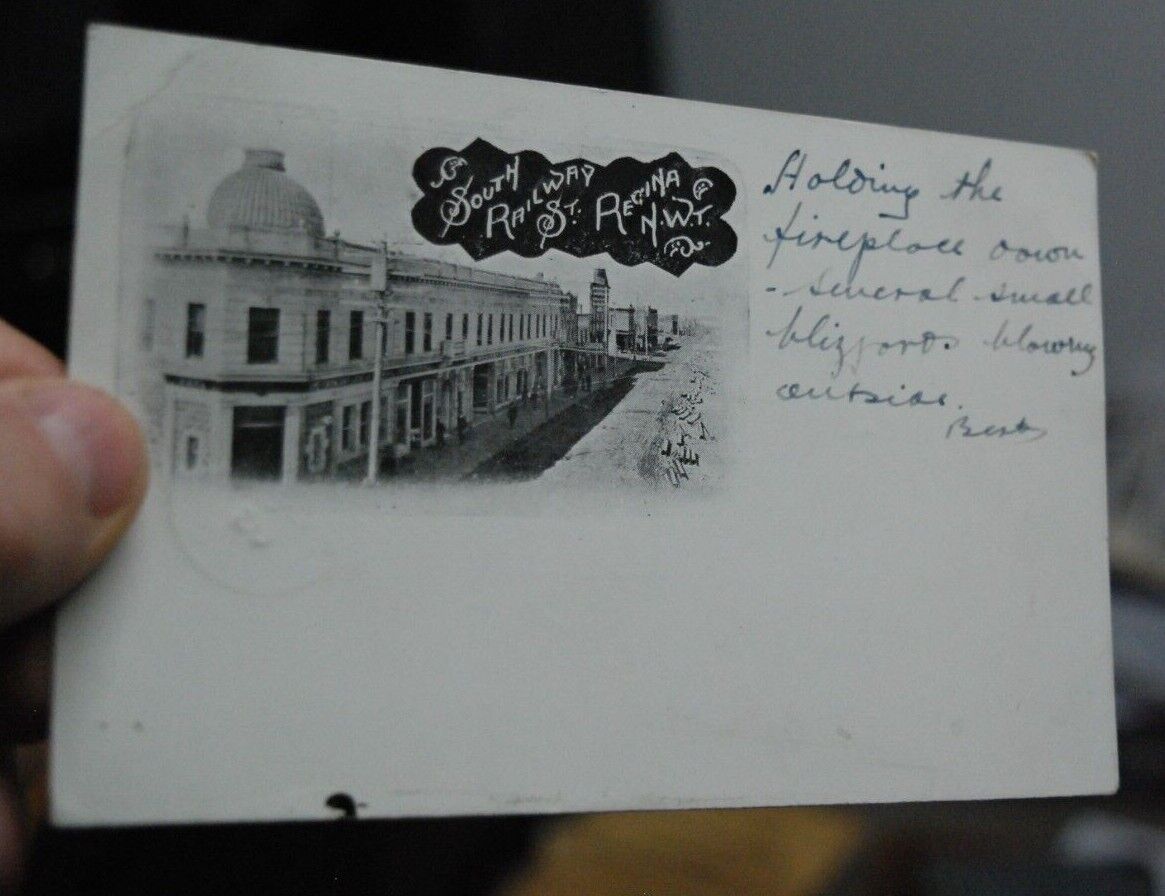 SOUTH
RAILWAY
ST. REGINA
N.W.T.
Holding the
fireplace down
- several small
blizzards blowing
outside.